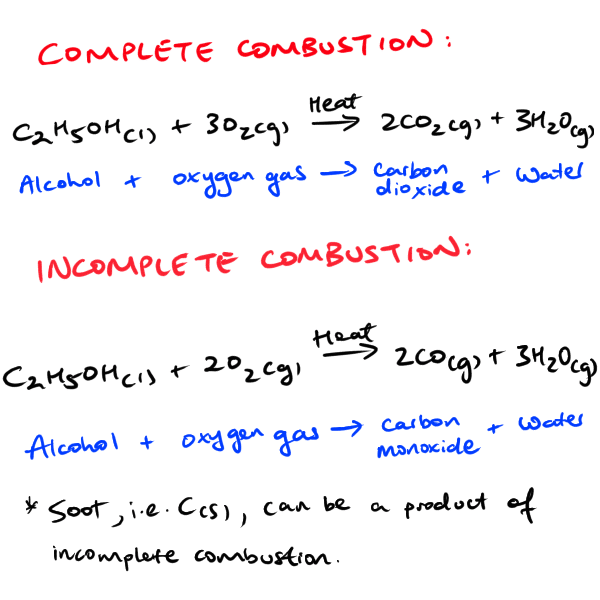 COMPLETE COMBUSTION:
Heat
C₂H₅OH(l) + 3O₂(g) → 2CO₂(g) + 3H₂O(g)
Alcohol + oxygen gas → carbon dioxide + water
INCOMPLETE COMBUSTION:
Heat
C₂H₅OH(l) + 2O₂(g) → 2CO(g) + 3H₂O(g)
Alcohol + oxygen gas → carbon monoxide + water
* Soot, i.e. C(s), can be a product of
incomplete combustion.